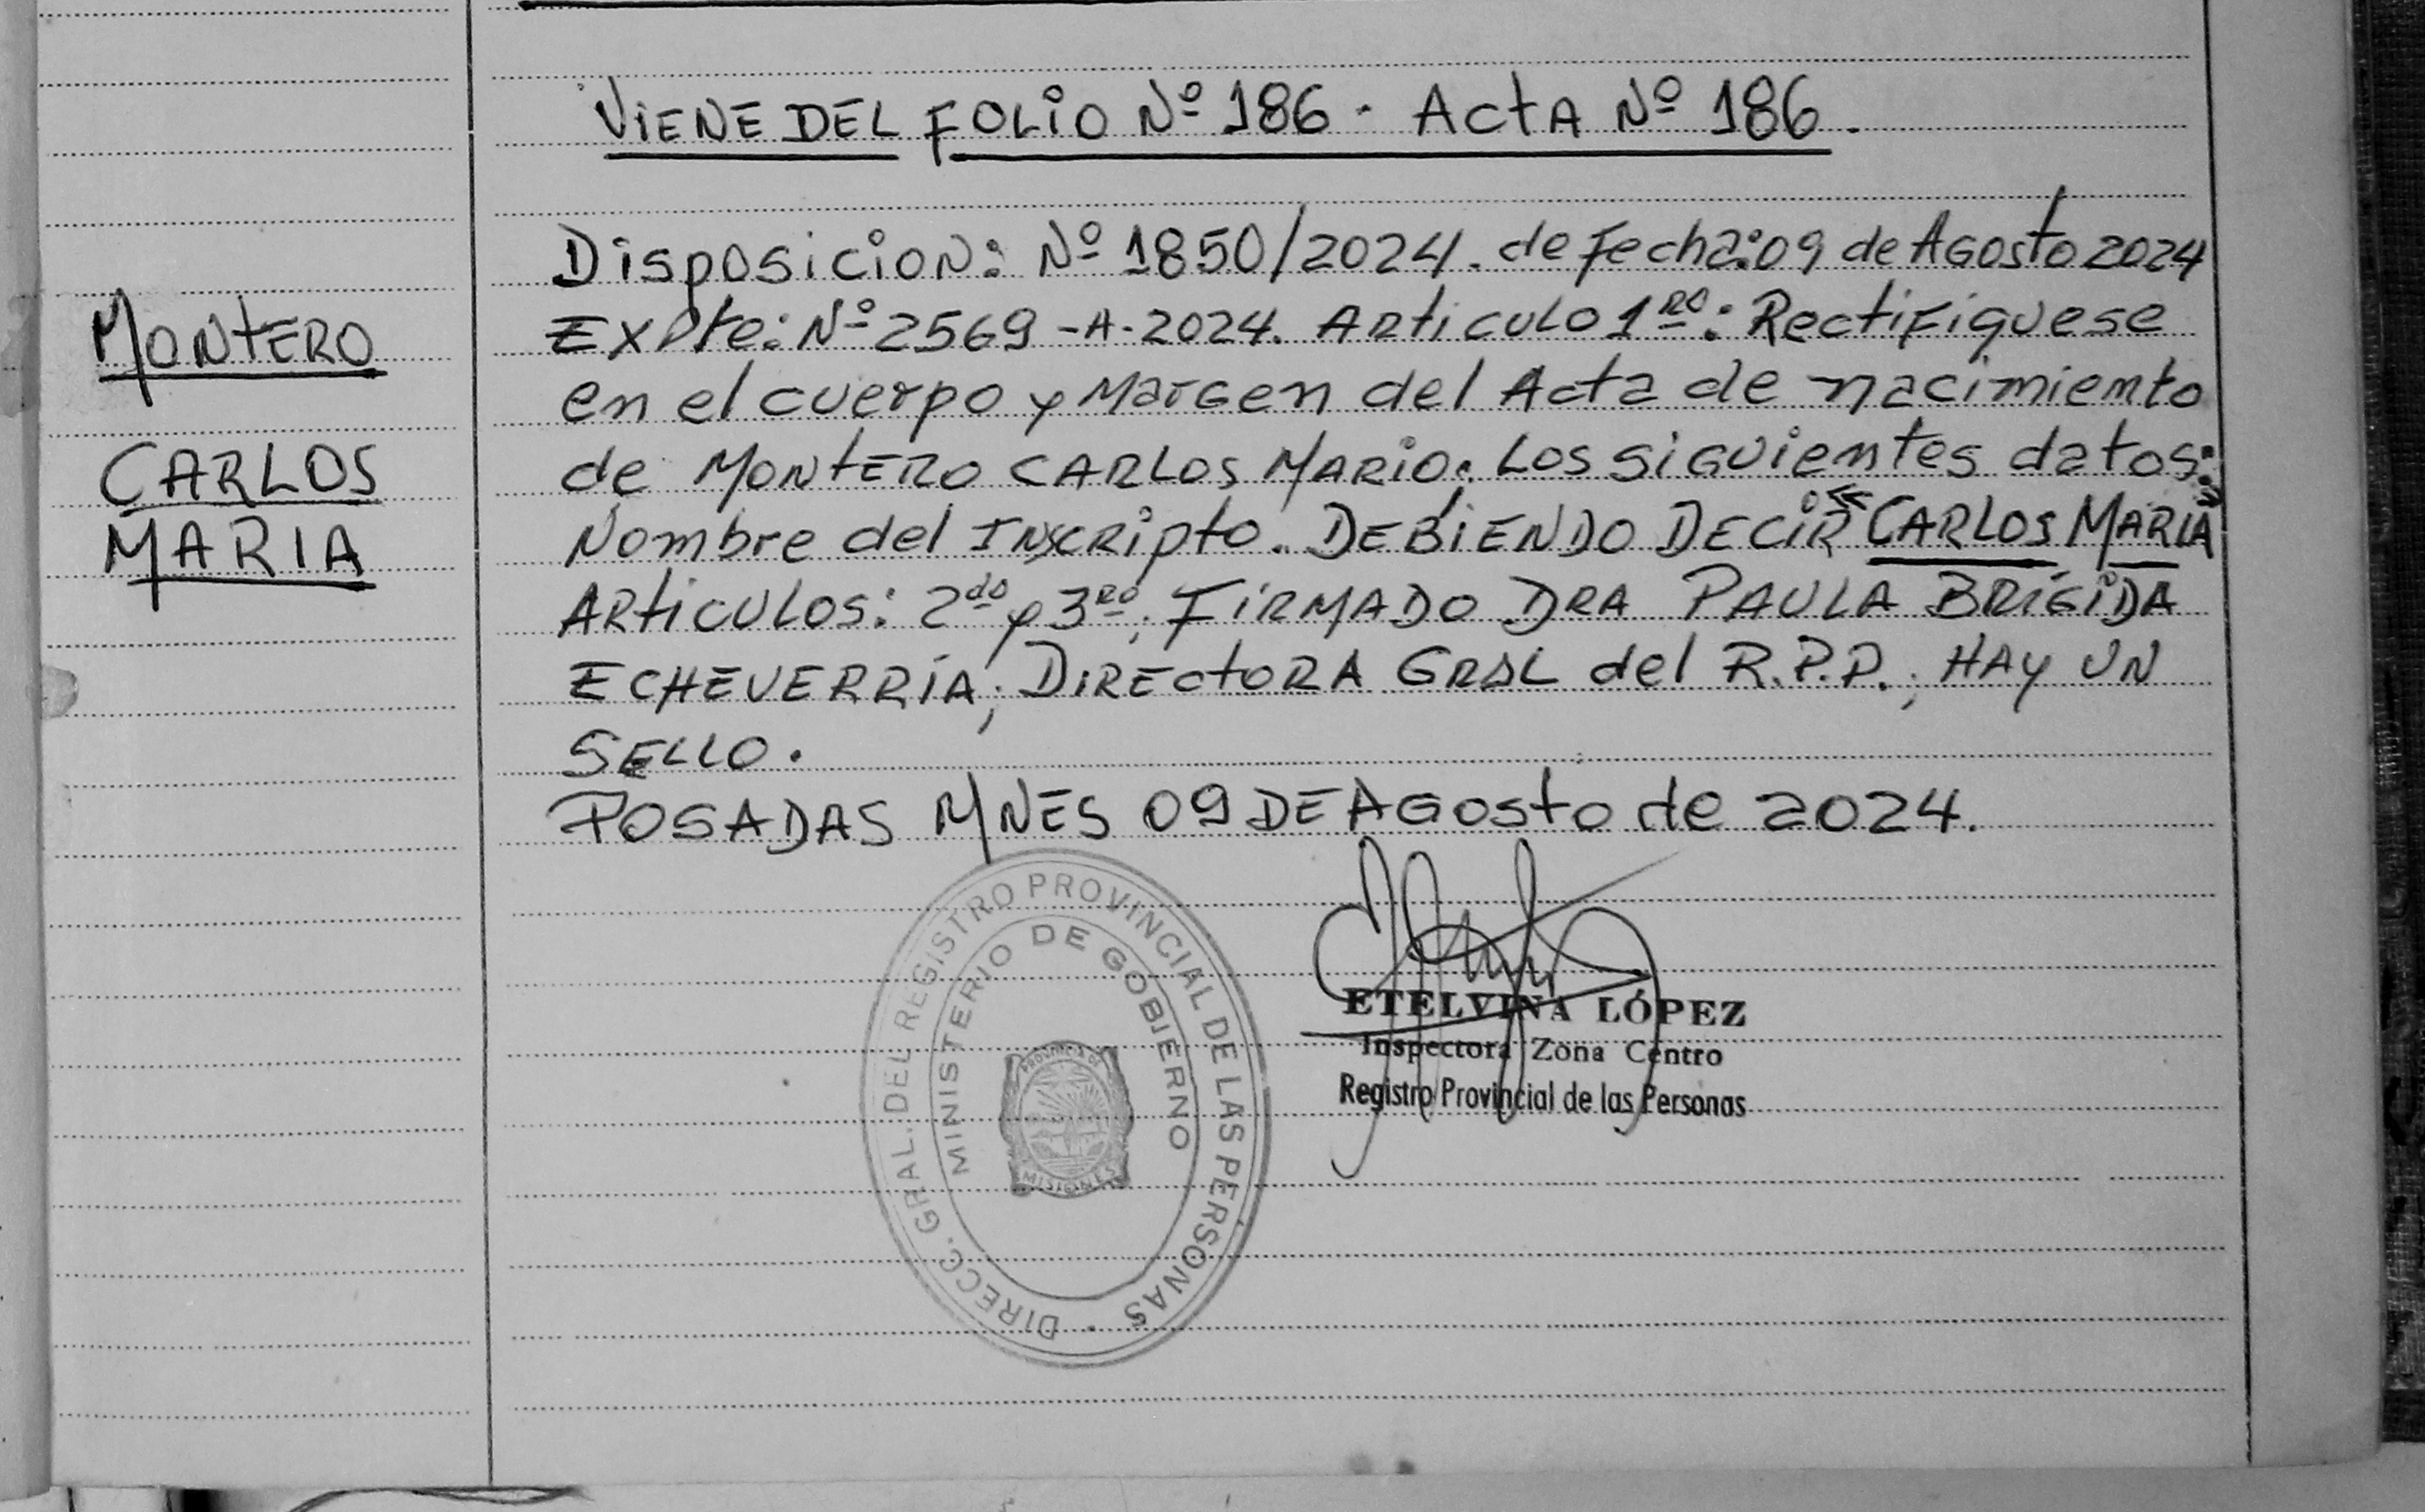 VIENE DEL FOLIO Nº 186 - ACTA Nº 186.
MONTERO
CARLOS
MARIA
Disposicion: Nº 1850/2024. de Fecha: 09 de AGosto 2024
EXPte: Nº 2569 -A- 2024. ARticulo 1ro: Rectifiquese
en el cuerpo y Margen del Acta de nacimiento
de MONTERO CARLOS MARIO. Los siguientes datos:
Nombre del INSCRIpto. DEBIENDO DECIR «CARLOS MARIA»
ARTICULOS: 2do y 3ro; FIRMADO DRA PAULA BRIGIDA
ECHEVERRÍA; DIRECTORA GRAL del R.P.P.; HAY UN
SELLO.
POSADAS MNES 09 DE AGosto de 2024.
DIRECC. GRAL. DEL REGISTRO PROVINCIAL DE LAS PERSONAS
MINISTERIO DE GOBIERNO
PROVINCIA DE
MISIONES
ETELVINA LÓPEZ
Inspectora Zona Centro
Registro Provincial de las Personas